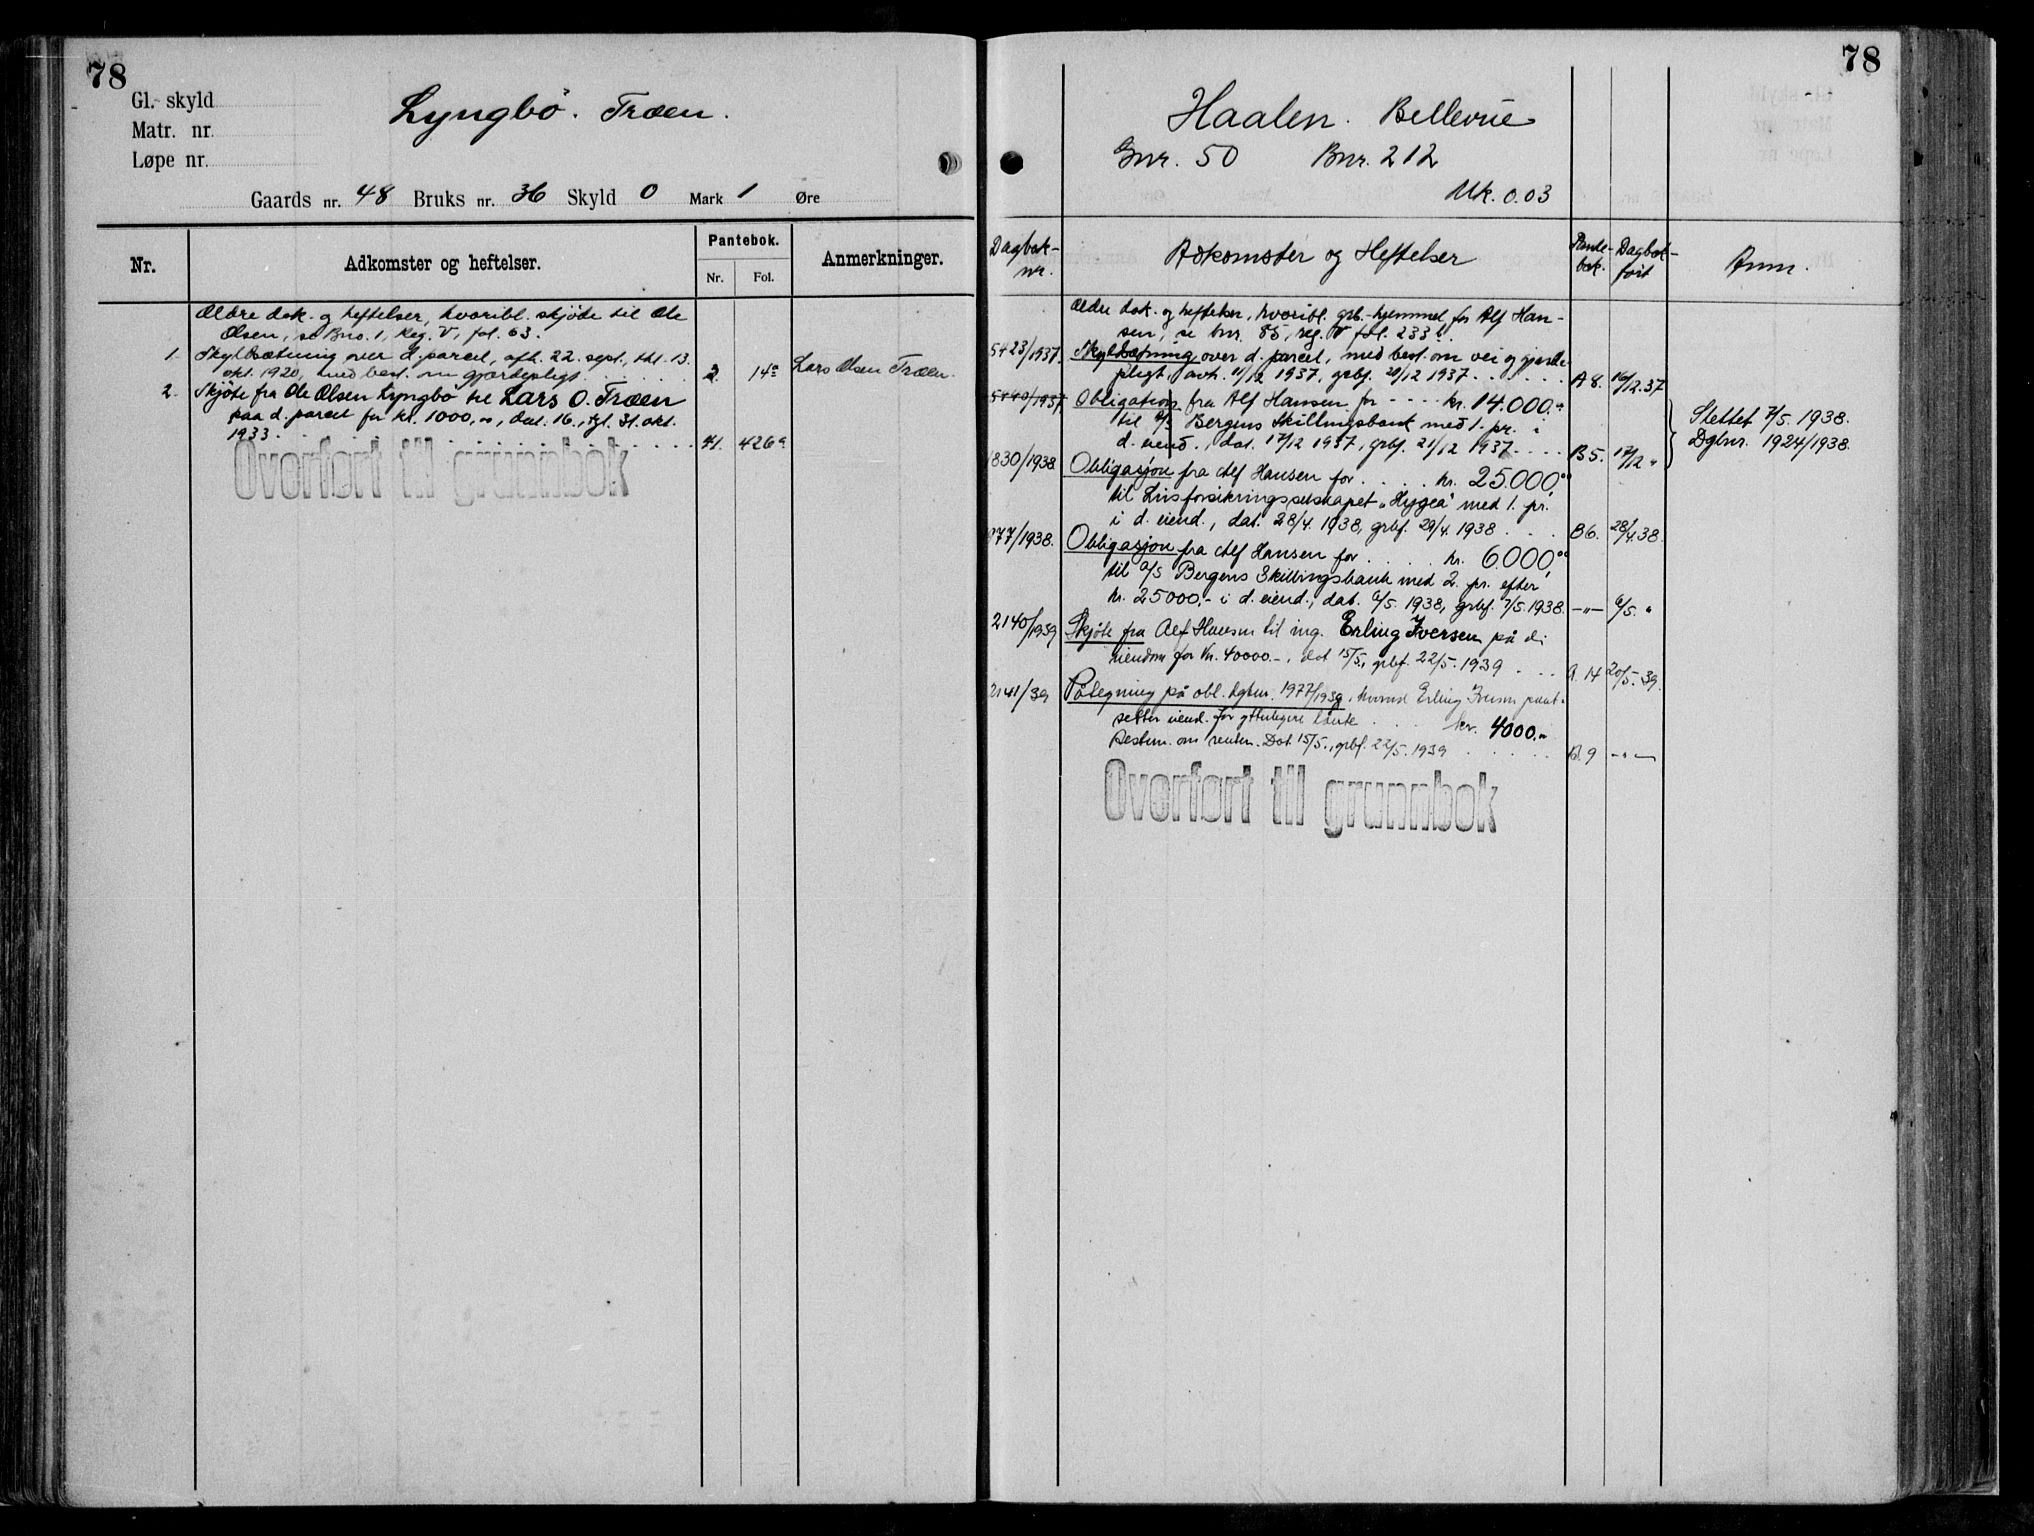 78
Gl. skyld
Matr. nr.
Løpe nr.
Lyngbö. Træen.
Gaards nr. 48 Bruks nr. 36 Skyld 0 Mark 1 Øre
Nr.
Adkomster og heftelser.
Pantebok.
Nr. Fol.
Anmerkninger.
Ældre dok. og heftelser, hvoribl. skjöte til Ole
Olsen, se Bno. 1, Reg. V, fol. 63.
1. Skyldsætning over d. parcel, afh. 22. sept., thl. 13.
okt. 1920, med best. om gjærdepligt . . . . . . 2. 14a Lars Olsen Træen.
2. Skjöte fra Ole Olsen Lyngbö til Lars O. Træen
paa d. parcel for kr. 1000,00, dat. 16., tgl. 31. okt.
1933. . . . . . . 41. 426a
Overført til grunnbok
78
Haalen. Bellevue
Gnr. 50 Bnr. 212
Mk. 0.03
Dagbok-
nr.
Adkomster og Heftelser
Pante-
bok.
Dagbok-
ført
Anm.
Ældre dok. og heftelser, hvoribl. grb.-hjemmel for Alf Han-
sen, se bnr. 85, reg. V fol. 233b.
5423/1937. Skyldsætning over d. parcel, med best. om vei og gjærde-
pligt, avh. 11/12 1937, grbf. 20/12 1937 . . . . . . A 8. 16/12.37
5440/1937 Obligation fra Alf Hansen for - - - - kr. 14.000.-
til A/S Bergens Skillingsbank med 1. pr. i
d. eiend., dat. 17/12 1937, grbf. 21/12 1937 . . . . B 5. 17/12 "
Slettet 7/5. 1938.
Dgbnr. 1924/1938.
1830/1938 Obligasjon fra Alf Hansen for . . . . kr. 25.000,00
til Livsforsikringsselskapet "Hygea" med 1. pr.
i d. eiend., dat. 28/4. 1938, grbf. 29/4. 1938 . . . B 6. 28/4.38.
1977/1938. Obligasjon fra Alf Hansen for . . . . . kr. 6000,00
til A/S Bergens Skillingsbank med 2. pr. efter
kr. 25000,- i d. eiend., dat. 6/5. 1938, grbf. 7/5. 1938. -"- 6/5. "
2140/1939 Skjöte fra Alf Hansen til ing. Erling Iversen på d.
eiendom for Kr. 40000.-, dat 15/5., grbf. 22/5. 1939 . . . A. 14 20/5. 39.
2141/39 Påtegning på obl. dgbnr. 1977/1938, hvorved Erling Iversen pant-
setter eiend. for ytterligere laante . . . . kr. 4000.-
Bestem. om renten. Dat. 15/5., grbf. 22/5. 1939 . . . . . B. 9 -"-
Overført til grunnbok